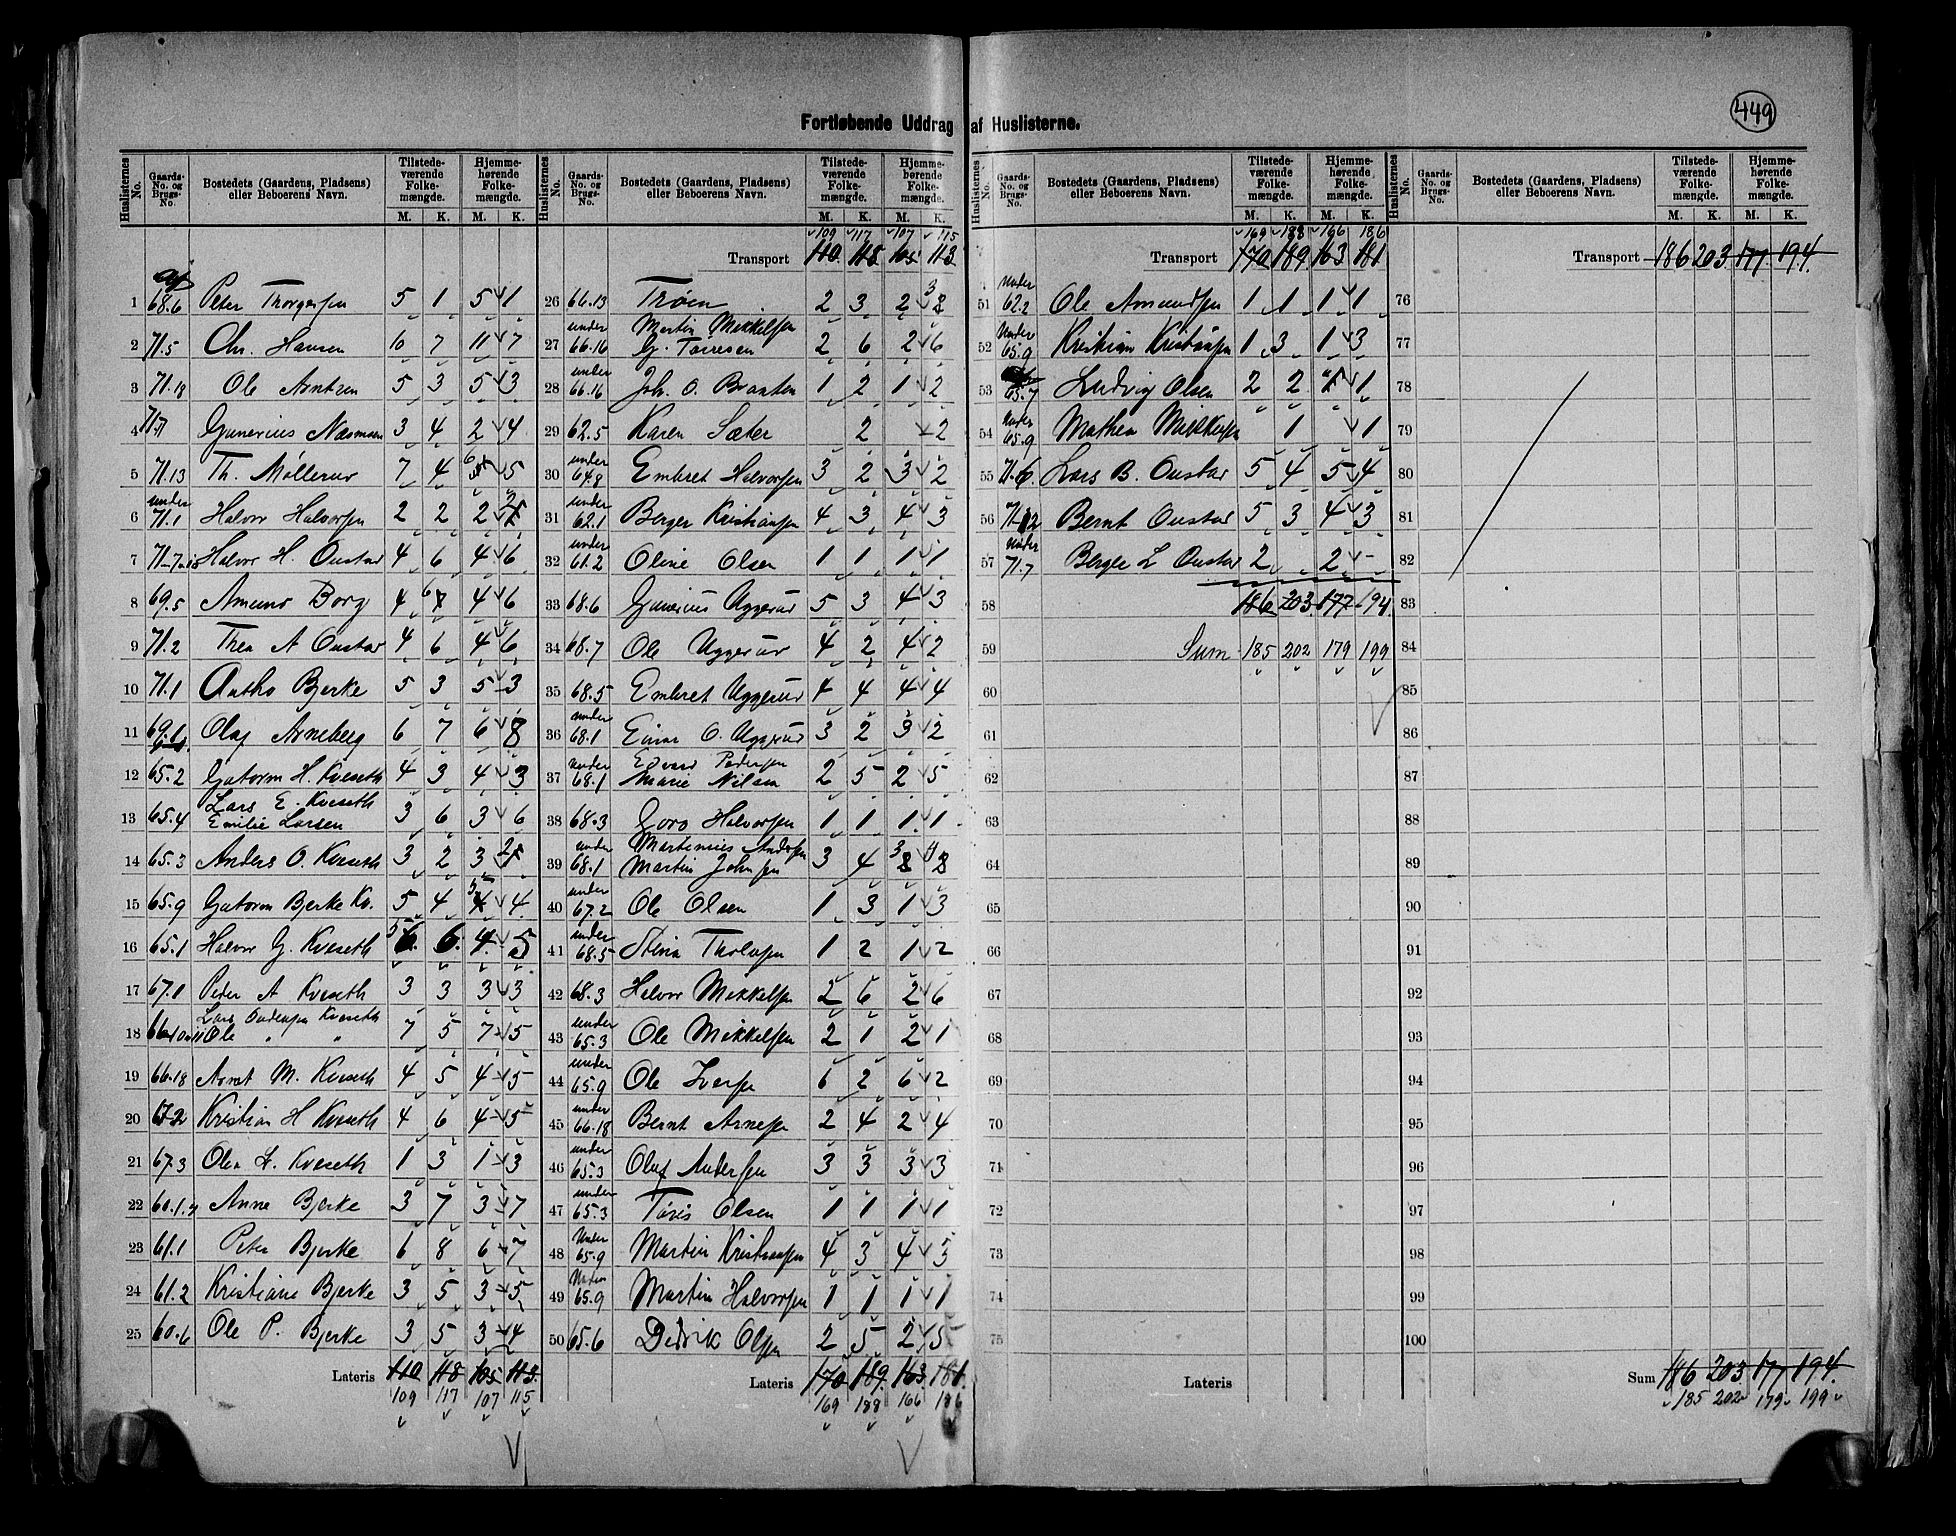 449
Fortløbende Uddrag af Huslisterne.
Huslisternes No. | Gaards-No. og Brugs-No. | Bostedets (Gaardens, Pladsens) eller Beboerens Navn. | Tilstedeværende Folkemængde. M. K. | Hjemmehørende Folkemængde. M. K.
1 68.6 Peter Thorgersen 5 1 5 1
2 71.5 Chr. Hansen 10 7 11 7
3 71.18 Ole Arntzen 5 3 5 3
4 71. Gunerius Næsmoen 3 4 2 4
5 71.13 Th. Møllerud 7 4 6 5
6 under 71.1 Halvor Halvorsen 2 2 2 2
7 71.7 Halvor H. Oustad 4 6 4 6
8 69.5 Amund Borg 4 6 4 6
9 71.2 Thea A Oustad 4 6 4 6
10 71.1 Bjerke 5 3 5 3
11 69.1 Olaf Arneberg 6 7 6 8
12 65.2 Gutorm H. Kveseth 4 3 4 3
13 65.4 Lars E. Kveseth
Emilie Larsen 3 6 3 6
14 65.3 Anders O. Kveseth 3 2 3 2
15 65.9 Gutorm Bjerke Kv. 5 4 5 4
16 65.1 Halvor G. Kveseth 5 6 4 5
17 67.1 Peder A Kveseth 3 3 3 3
18 66.10 Lars Kveseth
Ole " " 7 5 7 5
19 66.18 M. Kveseth 4 5 4 5
20 67.2 Kristian H Kveseth 4 6 4 5
21 67.3 Olea L. Kveseth 1 3 1 3
22 60.1 Anne Bjerke 3 7 3 7
23 61.1 Peter Bjerke 6 8 6 7
24 61.2 Kristiane Bjerke 3 5 3 5
25 60.6 Ole P. Bjerke 3 5 3 4
Lateris 110 118 105 113.
109 117 107 115
Huslisternes No. | Gaards-No. og Brugs-No. | Bostedets (Gaardens, Pladsens) eller Beboerens Navn. | Tilstedeværende Folkemængde. M. K. | Hjemmehørende Folkemængde. M. K.
109 117 107 115
Transport 110. 118. 105 113.
26 66.13 Trøen 2 3 2 3
27 under 66.16 Martin Mikkelsen
G. Torresen 2 6 2 6
28 under 66.16 Joh. O. Braaten 1 2 1 2
29 62.5 Karen Sæter 2 - 2
30 under 64.8 Embret Halvorsen 3 2 3 2
31 under 62.1 Berger Kristiansen 4 3 4 3
32 under 61.2 Oline Olsen 1 1 1 1
33 68.6 Gunerius Uggerud 5 3 4 3
34 68.7 Ole Uggerud 4 2 4 2
35 68.5 Embret Uggerud 4 4 4 4
36 under 68.1 Einar O. Uggerud 3 2 3 2
37 under 68.1 Edvard Pedersen
Marie Nilsen 2 5 2 5
38 68.3 Goro Halvorsen 1 1 1 1
39 under 68.1 Martinius Andersen
Martin Johnsen 3 4 3 4
40 under 67.2 Ole Olsen 1 3 1 3
41 under 68.5 Stina Tholvsen 1 2 1 2
42 68.3 Halvor Mikkelsen 2 6 2 6
43 under 65.3 Ole Mikkelsen 2 1 2 1
44 under 65.9 Ole Iversen 6 2 6 2
45 under 66.18 Bernt Arnesen 2 4 2 4
46 under 65.3 Oluf Andersen 3 3 3 3
47 under 65.3 Toris Olsen 1 1 1 1
48 Under 65.9 Martin Kristiansen 4 3 4 3
49 Under 65.9 Martin Halvorsen 1 1 1 1
50 65.6 Didrik Olsen 2 5 2 5
Lateris 170 189. 163. 181.
169 188 166 186
Huslisternes No. | Gaards-No. og Brugs-No. | Bostedets (Gaardens, Pladsens) eller Beboerens Navn. | Tilstedeværende Folkemængde. M. K. | Hjemmehørende Folkemængde. M. K.
169 188 166 186
Transport 170 189 163 181
51 under 62.2 Ole Amundsen 1 1 1 1
52 Under 65.9 Kristian Kristiansen 1 3 1 3
53 65.7 Ludvig Olsen 2 2 1
54 Under 65.9 Mathea Mikkelsen 1 1
55 71.6 Lars B. Oustad 5 4 5 4
56 71.12 Bernt Oustad 5 3 4 3
57 under 71.7 Berger L Oustad 2 2 -
58 186 203. 177 194.
59 Sum 185 202 179 199
60
61
62
63
64
65
66
67
68
69
70
71
72
73
74
75
Lateris
Huslisternes No. | Gaards-No. og Brugs-No. | Bostedets (Gaardens, Pladsens) eller Beboerens Navn. | Tilstedeværende Folkemængde. M. K. | Hjemmehørende Folkemængde. M. K.
Transport 186 203 177. 194.
76
77
78
79
80
81
82
83
84
85
86
87
88
89
90
91
92
93
94
95
96
97
98
99
100
Sum 186 203. 177 194.
185 202 179 199